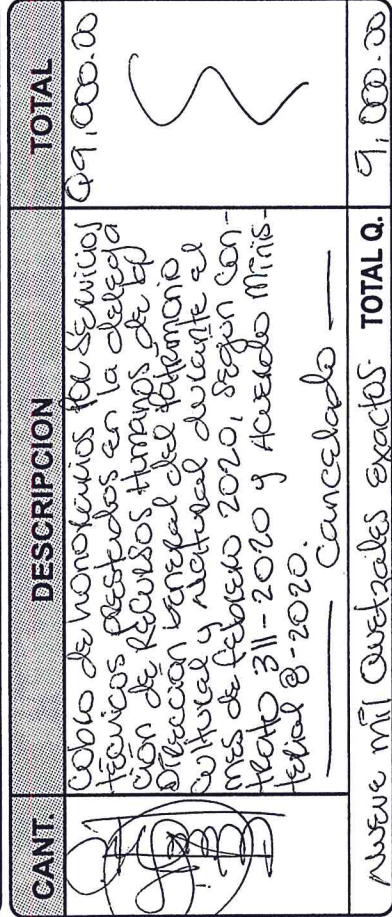 CANT. DESCRIPCION TOTAL
Cobro de honorarios por Servicios Q9,000.00
técnicos prestados en la delega
ción de Recursos Humanos de la
Dirección General del Patrimonio
Cultural y Natural durante el
mes de febrero 2020, según con-
trato 311-2020 y Acuerdo Minis-
terial 8-2020.
Cancelado
Nueve mil Quetzales exactos. TOTAL Q. 9,000.00